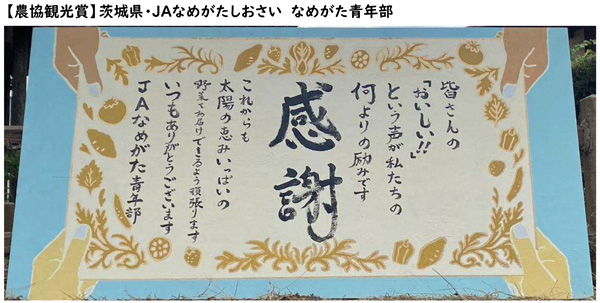 【農協観光賞】茨城県・JAなめがたしおさい なめがた青年部
皆さんの
「おいしい!!」
という声が私たちの
何よりの励みです
感謝
これからも
太陽の恵みいっぱいの
野菜をお届けできるよう頑張ります
いつもありがとうございます
JAなめがた青年部